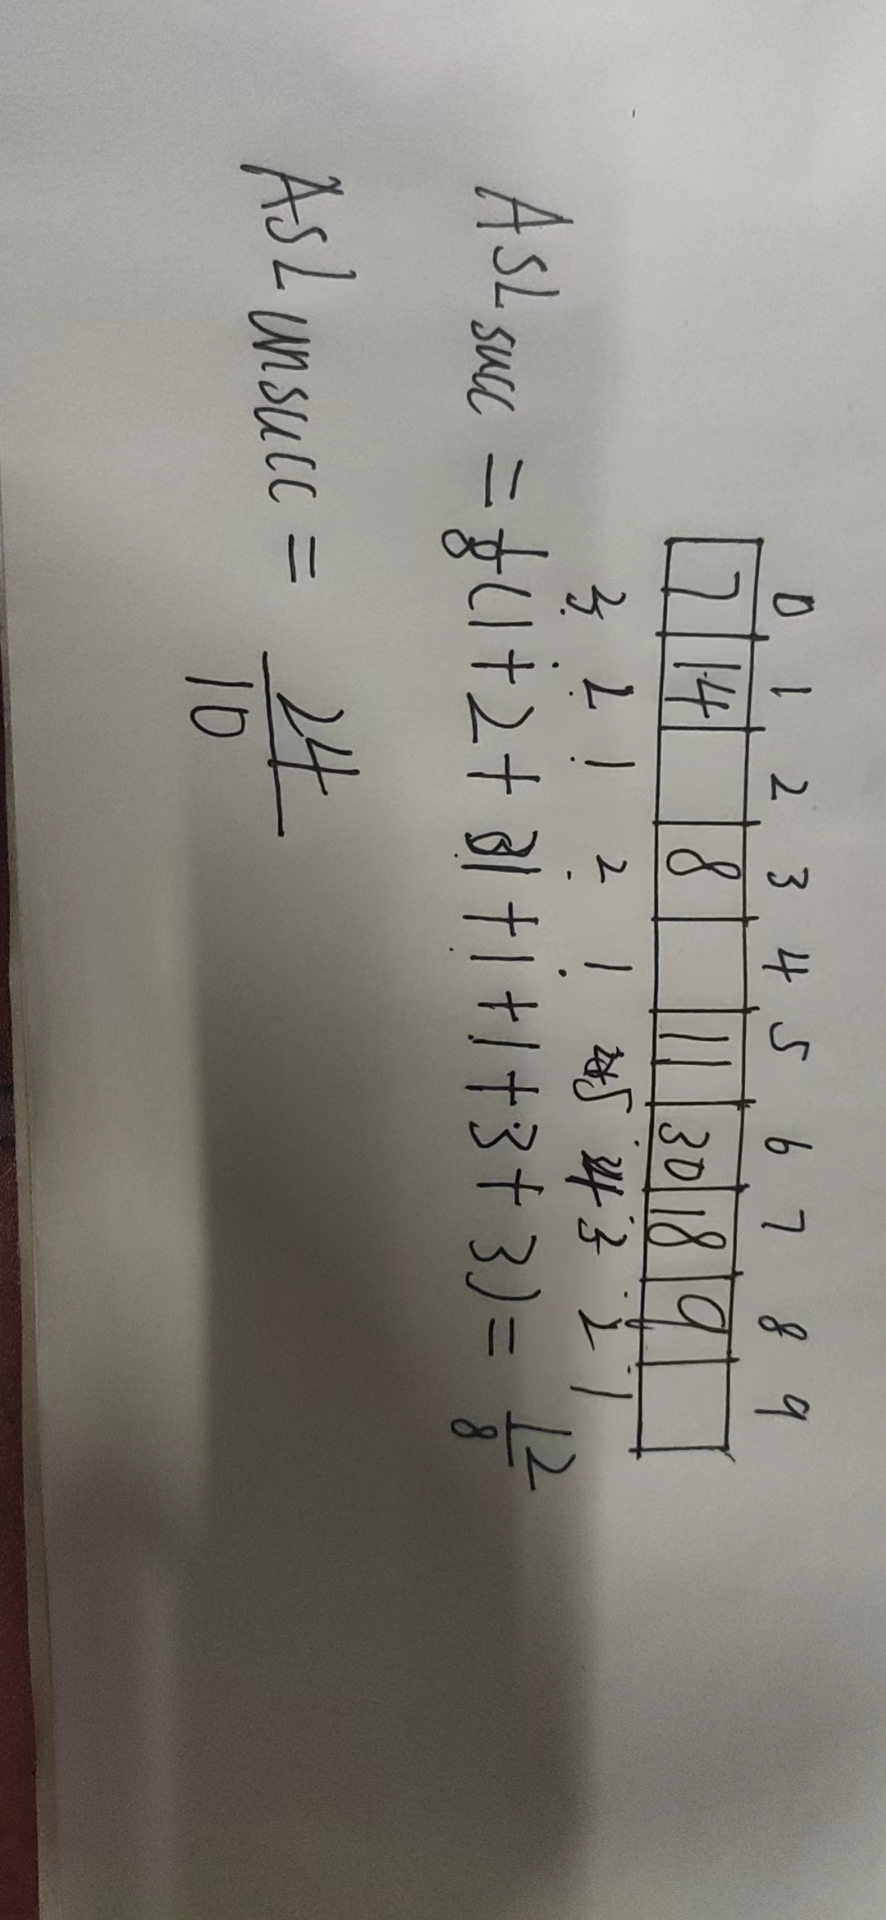 0 1 2 3 4 5 6 7 8 9
7 14 8 11 30 18 9
3 2 1 2 1 5 4 3 2 1
ASL succ = 1/8 (1+2+1+1+1+3+3) = 12/8
ASL unsucc = 24/10